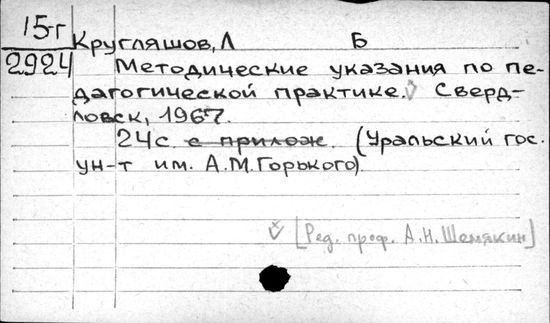 15-г
2924
Кругляшов, Л Б
Методические указания по пе-
дагогической практике. Сверд-
ловск, 1967.
24с. с прилож. (Уральский гос.
ун-т им. А.М.Горького)
[Ред. проф. А.Н.Шемякин]